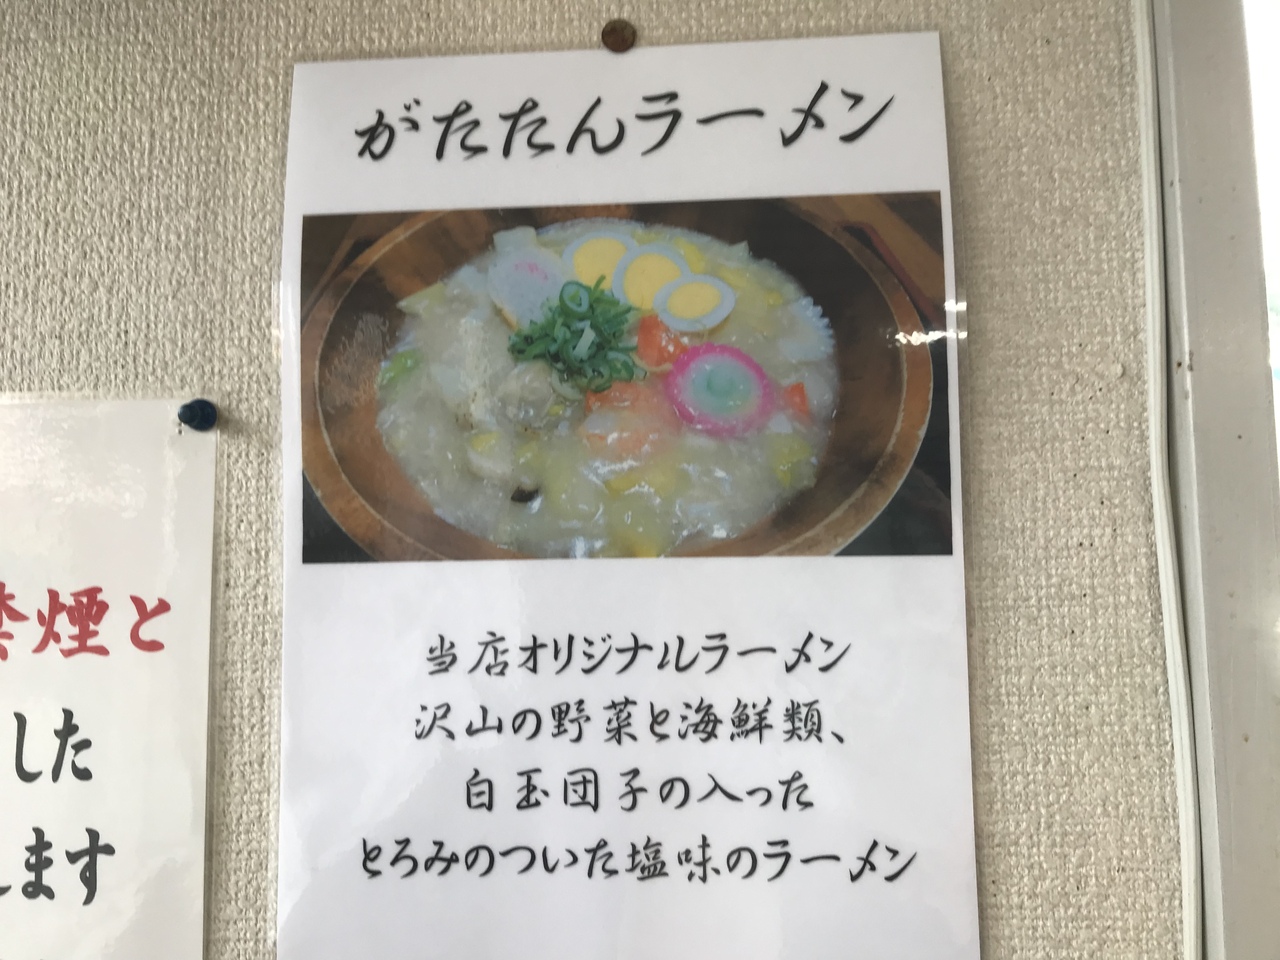 がたたんラーメン
当店オリジナルラーメン
沢山の野菜と海鮮類、
白玉団子の入った
とろみのついた塩味のラーメン
禁煙と
した
ます